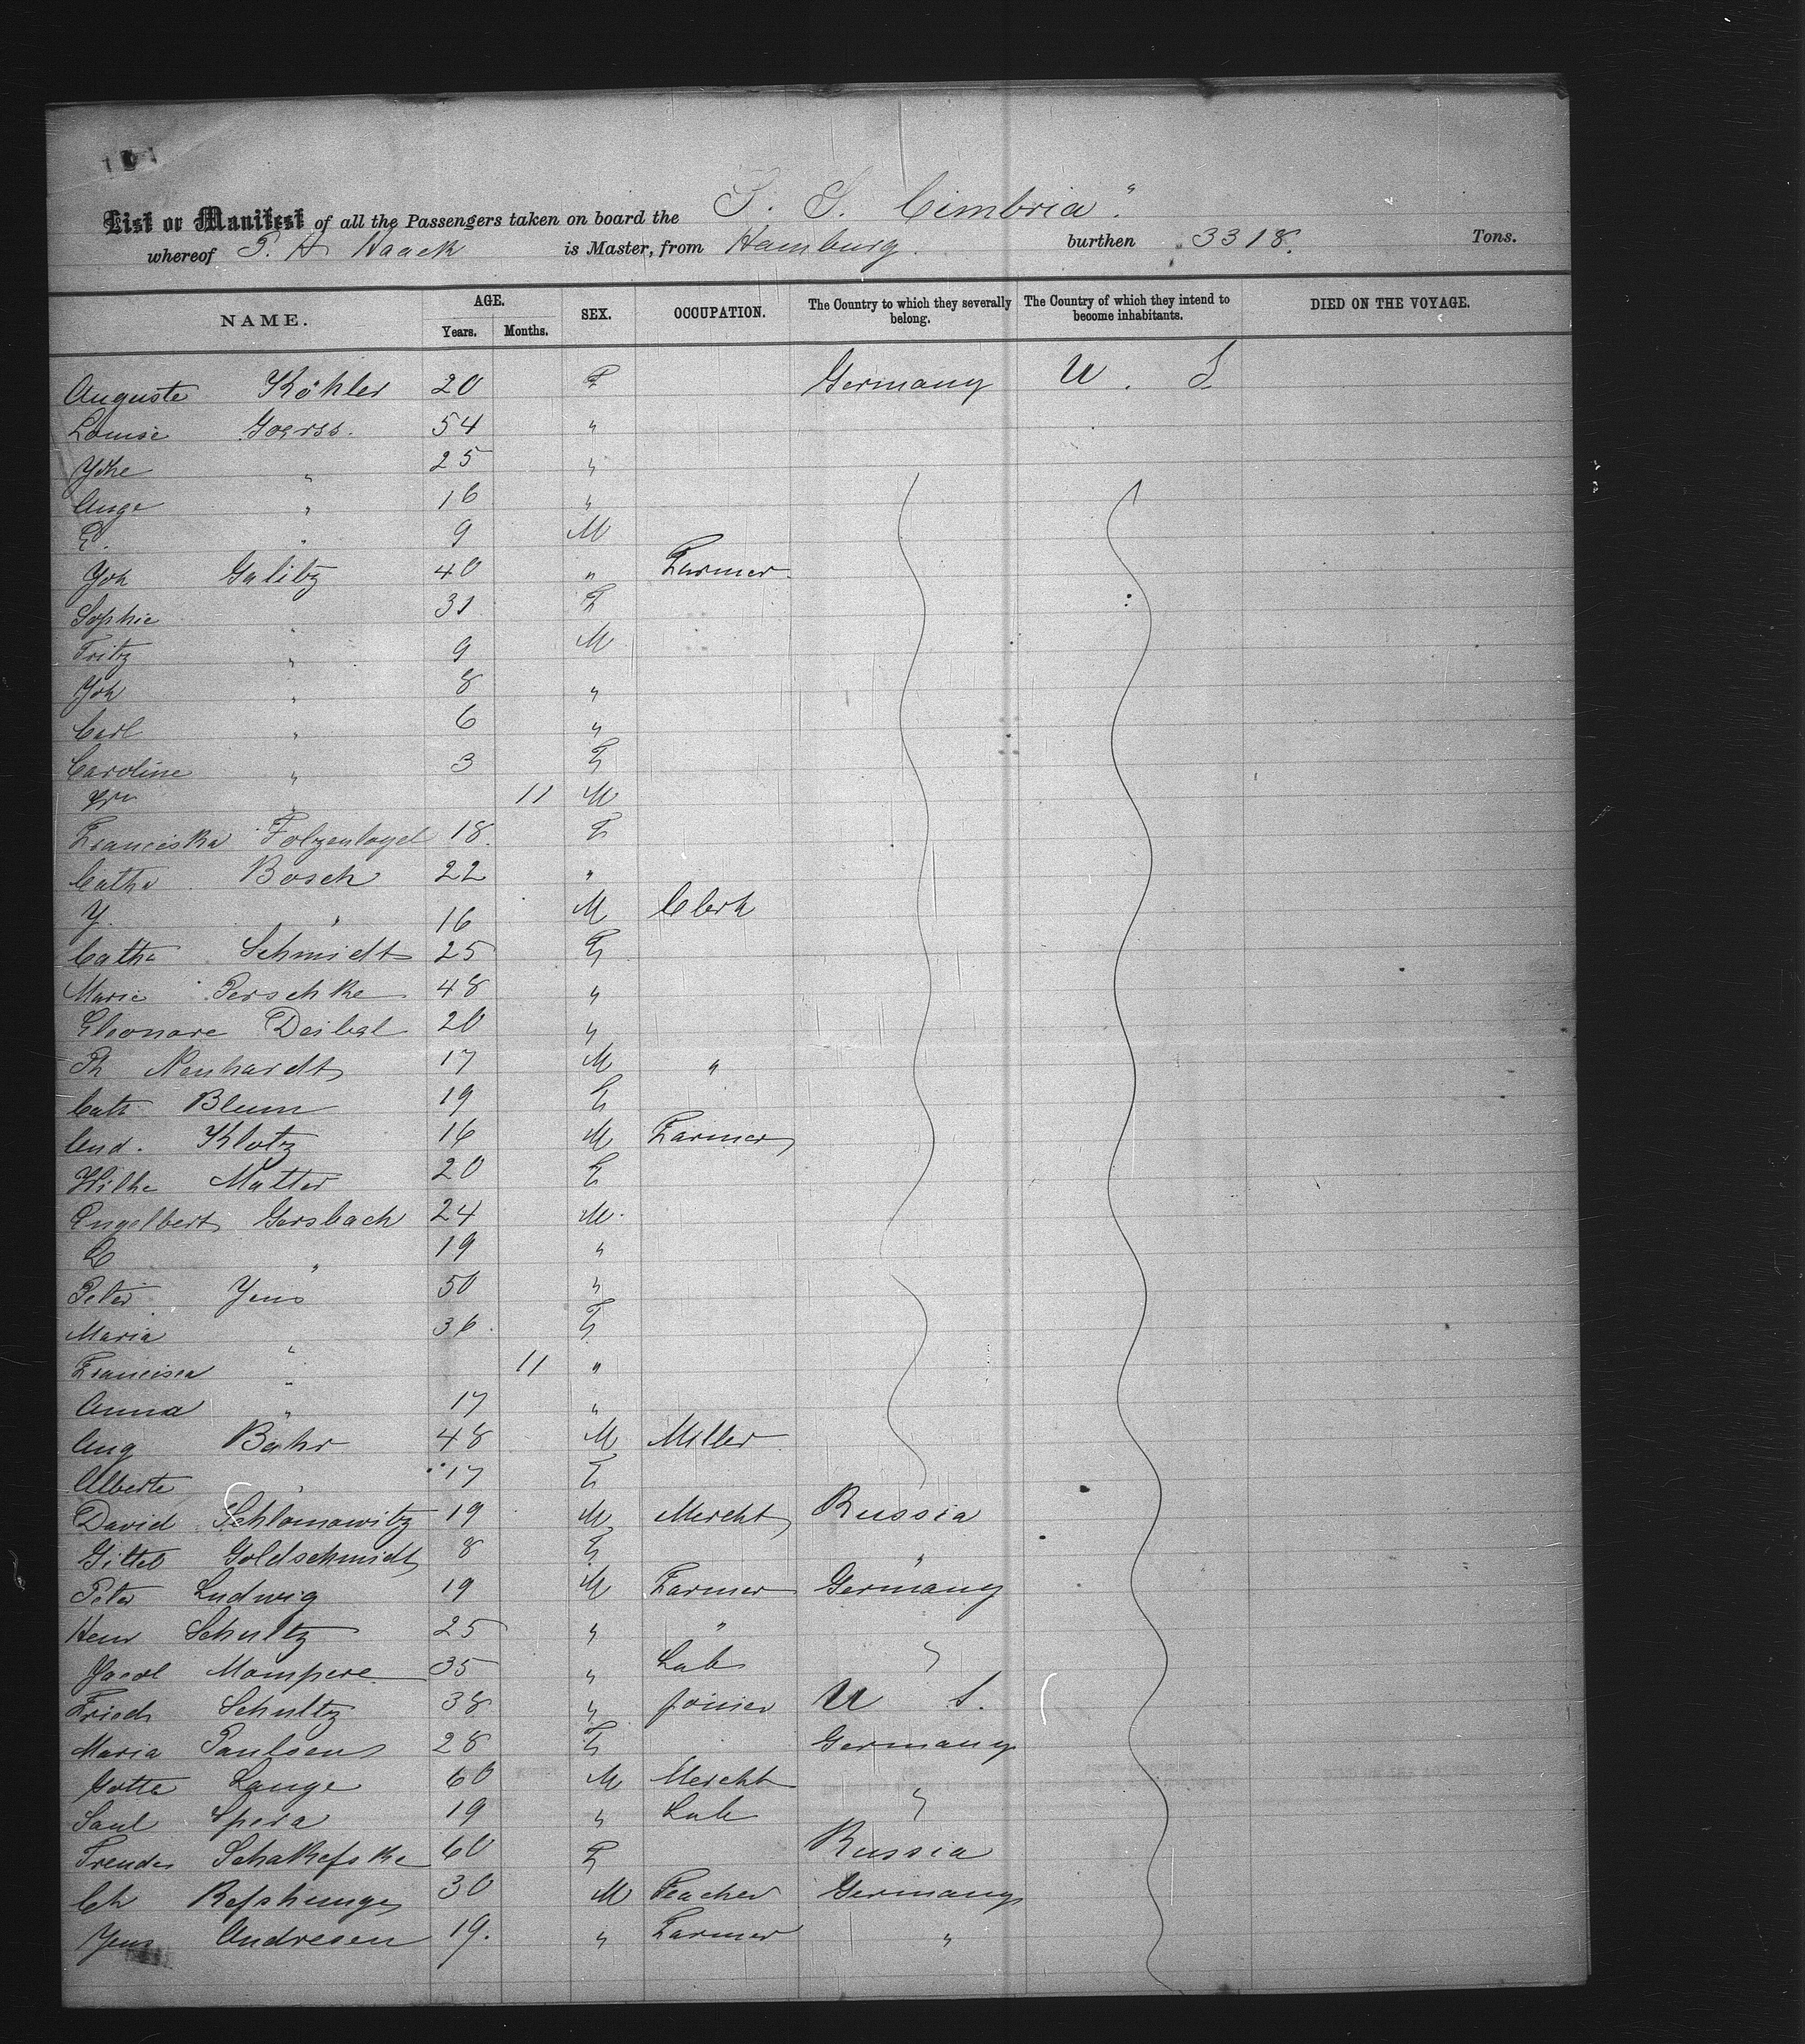 List or Manifest of all the Passengers taken on board the S. S. Cimbria"
whereof P. H Haack is Master, from Hamburg. burthen 3318. Tons.
NAME. AGE. Years. Months. SEX. OCCUPATION. The Country to which they severally belong. The Country of which they intend to become inhabitants. DIED ON THE VOYAGE.
Auguste Köhler 20 F Germany U. S
Louise Goerss. 54 "
25 "
Auge " 16 "
E. " 9 M
Joh Galitz 40 " Farmer
Sophie " 31 F
Fritz " 9 M
Joh " 8 "
Carl " 6 "
Caroline " 3 F
" 11 M
Franciska 18. F
Catha Bosch 22 "
J. " 16 M Clerk
Catha Schmidt 25 F
Marie Perschke 48 "
Eleonore Deibel 20 "
Ph Neuhardt 17 M "
Cath Blum 19 F
And. Klotz 16 M Farmer
Wilhe Matter 20 F
Engelbert Gersbach 24 M
" 19 "
Peter Jens 50 "
Maria " 36. F
Francisca " 11 "
Anna " 17 "
Aug Bahr 48 M Miller
Alberte " 17 F
David Schlomowitz 19 M Mercht Russia
Gittel Goldschmidt 8 F "
Peter Ludwig 19 M Farmer Germany
Henr Schultz 25 " "
Jacob Mompere 35 " Lab "
Friedr Schultz 38 " joiner U S.
Maria Paulsen 28 F Germany
Gotte Lange 60 M Mercht
Saul Spera 19 " Lab "
Freude 60 F Russia
Ch 30 M Teacher Germany
Jens Andresen 19. " Farmer "